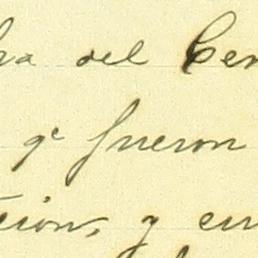 ra del Cen
qe fueron
cion, y en